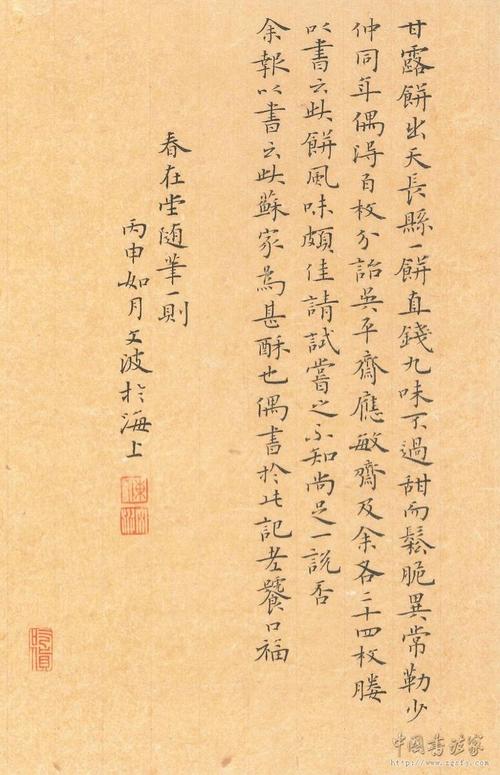 甘露餅出天長縣一餅直錢九味不過甜而鬆脆異常勒少
仲同年偶得百枚分詒吳平齋應敏齋及余各二十四枚媵
以書云此餅風味頗佳請試嘗之不知尚足一說否
余報以書云此蘇家為甚酥也偶書於此記老饕口福
春在堂隨筆一則
丙申如月文波於海上
中国书法家
http://www.zgsfj.com